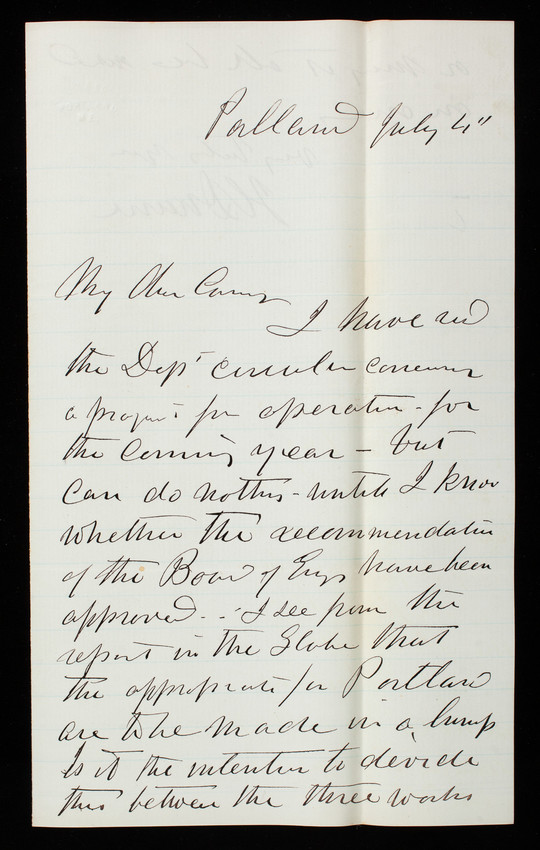 Portland July 4"
My Dear Casey
I have recd
the Dept circular concerning
a project for operation - for
the coming year - but
can do nothing - until I know
whether the recommendation
of the Board of Engs have been
approved. - I see from the
report in the Globe that
the appropriation for Portland
are to be made in a lump
Is it the intention to divide
this between the three works